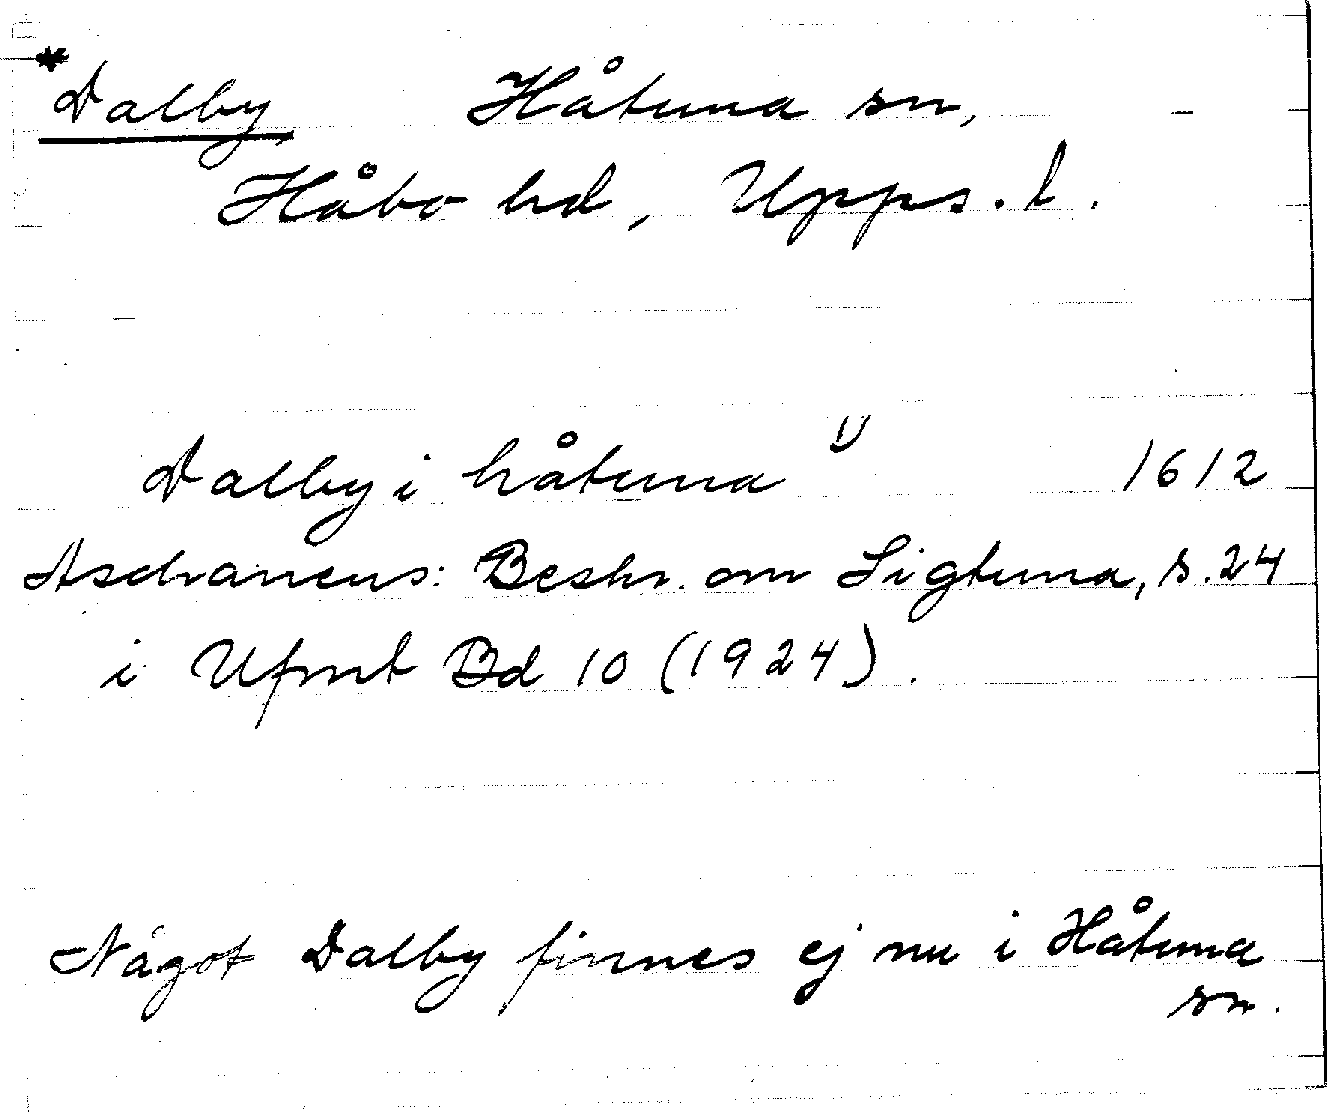 *Dalby, Håtuna sn,
Håbo hd, Upps. l.
Dalby i håtuna 1) 1612
Aschaneus: Beskr. om Sigtuna, s. 24
i Ufmt Bd 10 (1924).
Något Dalby finnes ej nu i Håtuna
sn.